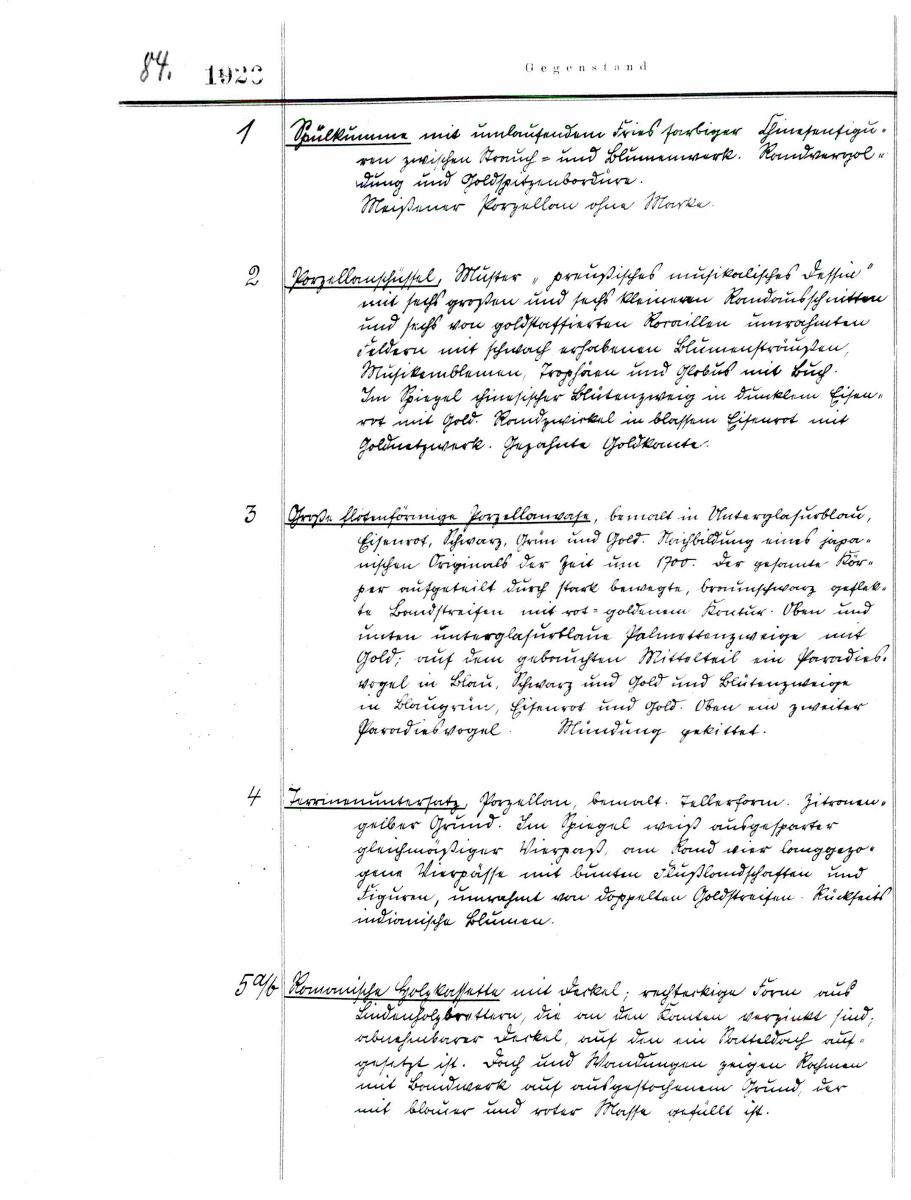 84. 1926 Gegenstand
1 Spülkumme mit umlaufendem Fries farbiger Chinesenfigu-
ren zwischen Strauch- und Blumenwerk. Randvergol-
dung und Goldspitzenbordüre.
Meißener Porzellan ohne Marke.
2 Porzellanschüssel, Muster „preußisches musikalisches Dessin"
mit sechs großen und sechs kleineren Randausschnitten
und sechs von goldstaffierten Rocaillen umrahmten
Feldern mit schwach erhabenen Blumensträußen,
Musikemblemen, Trophäen und Globus mit Buch.
Im Spiegel chinesischer Blütenzweig in dunklem Eisen-
rot mit Gold. Randzwickel in blassem Eisenrot mit
Goldnetzwerk. Gezahnte Goldkante.
3 Große flötenförmige Porzellanvase, bemalt in Unterglasurblau,
Eisenrot, Schwarz, Grün und Gold. Nachbildung eines japa-
nischen Originals der Zeit um 1700. Der gesamte Kör-
per aufgeteilt durch stark bewegte, braunschwarz geflek-
te Bandstreifen mit rot-goldenem Kontur. Oben und
unten unterglasurblaue Palmettenzweige mit
Gold; auf dem gebauchten Mittelteil ein Paradies-
vogel in Blau, Schwarz und Gold und Blütenzweige
in Blaugrün, Eisenrot und Gold. Oben ein zweiter
Paradiesvogel. Mündung gekittet.
4 Terrinenuntersatz, Porzellan, bemalt. Tellerform. Zitronen-
gelber Grund. Im Spiegel weiß ausgesparter
gleichmäßiger Vierpaß, am Rand vier langgezo-
gene Vierpässe mit bunten Flußlandschaften und
Figuren, umrahmt von doppelten Goldstreifen. Rückseits
indianische Blumen.
5 a/b Romanische Holzkassette mit Deckel; rechteckige Form aus
Lindenholzbrettern, die an den Kanten verzinkt sind;
abnehmbarer Deckel, auf den ein Satteldach auf-
gesetzt ist. Dach und Wandungen zeigen Rahmen
mit Bandwerk auf ausgestochenem Grund, der
mit blauer und roter Masse gefüllt ist.